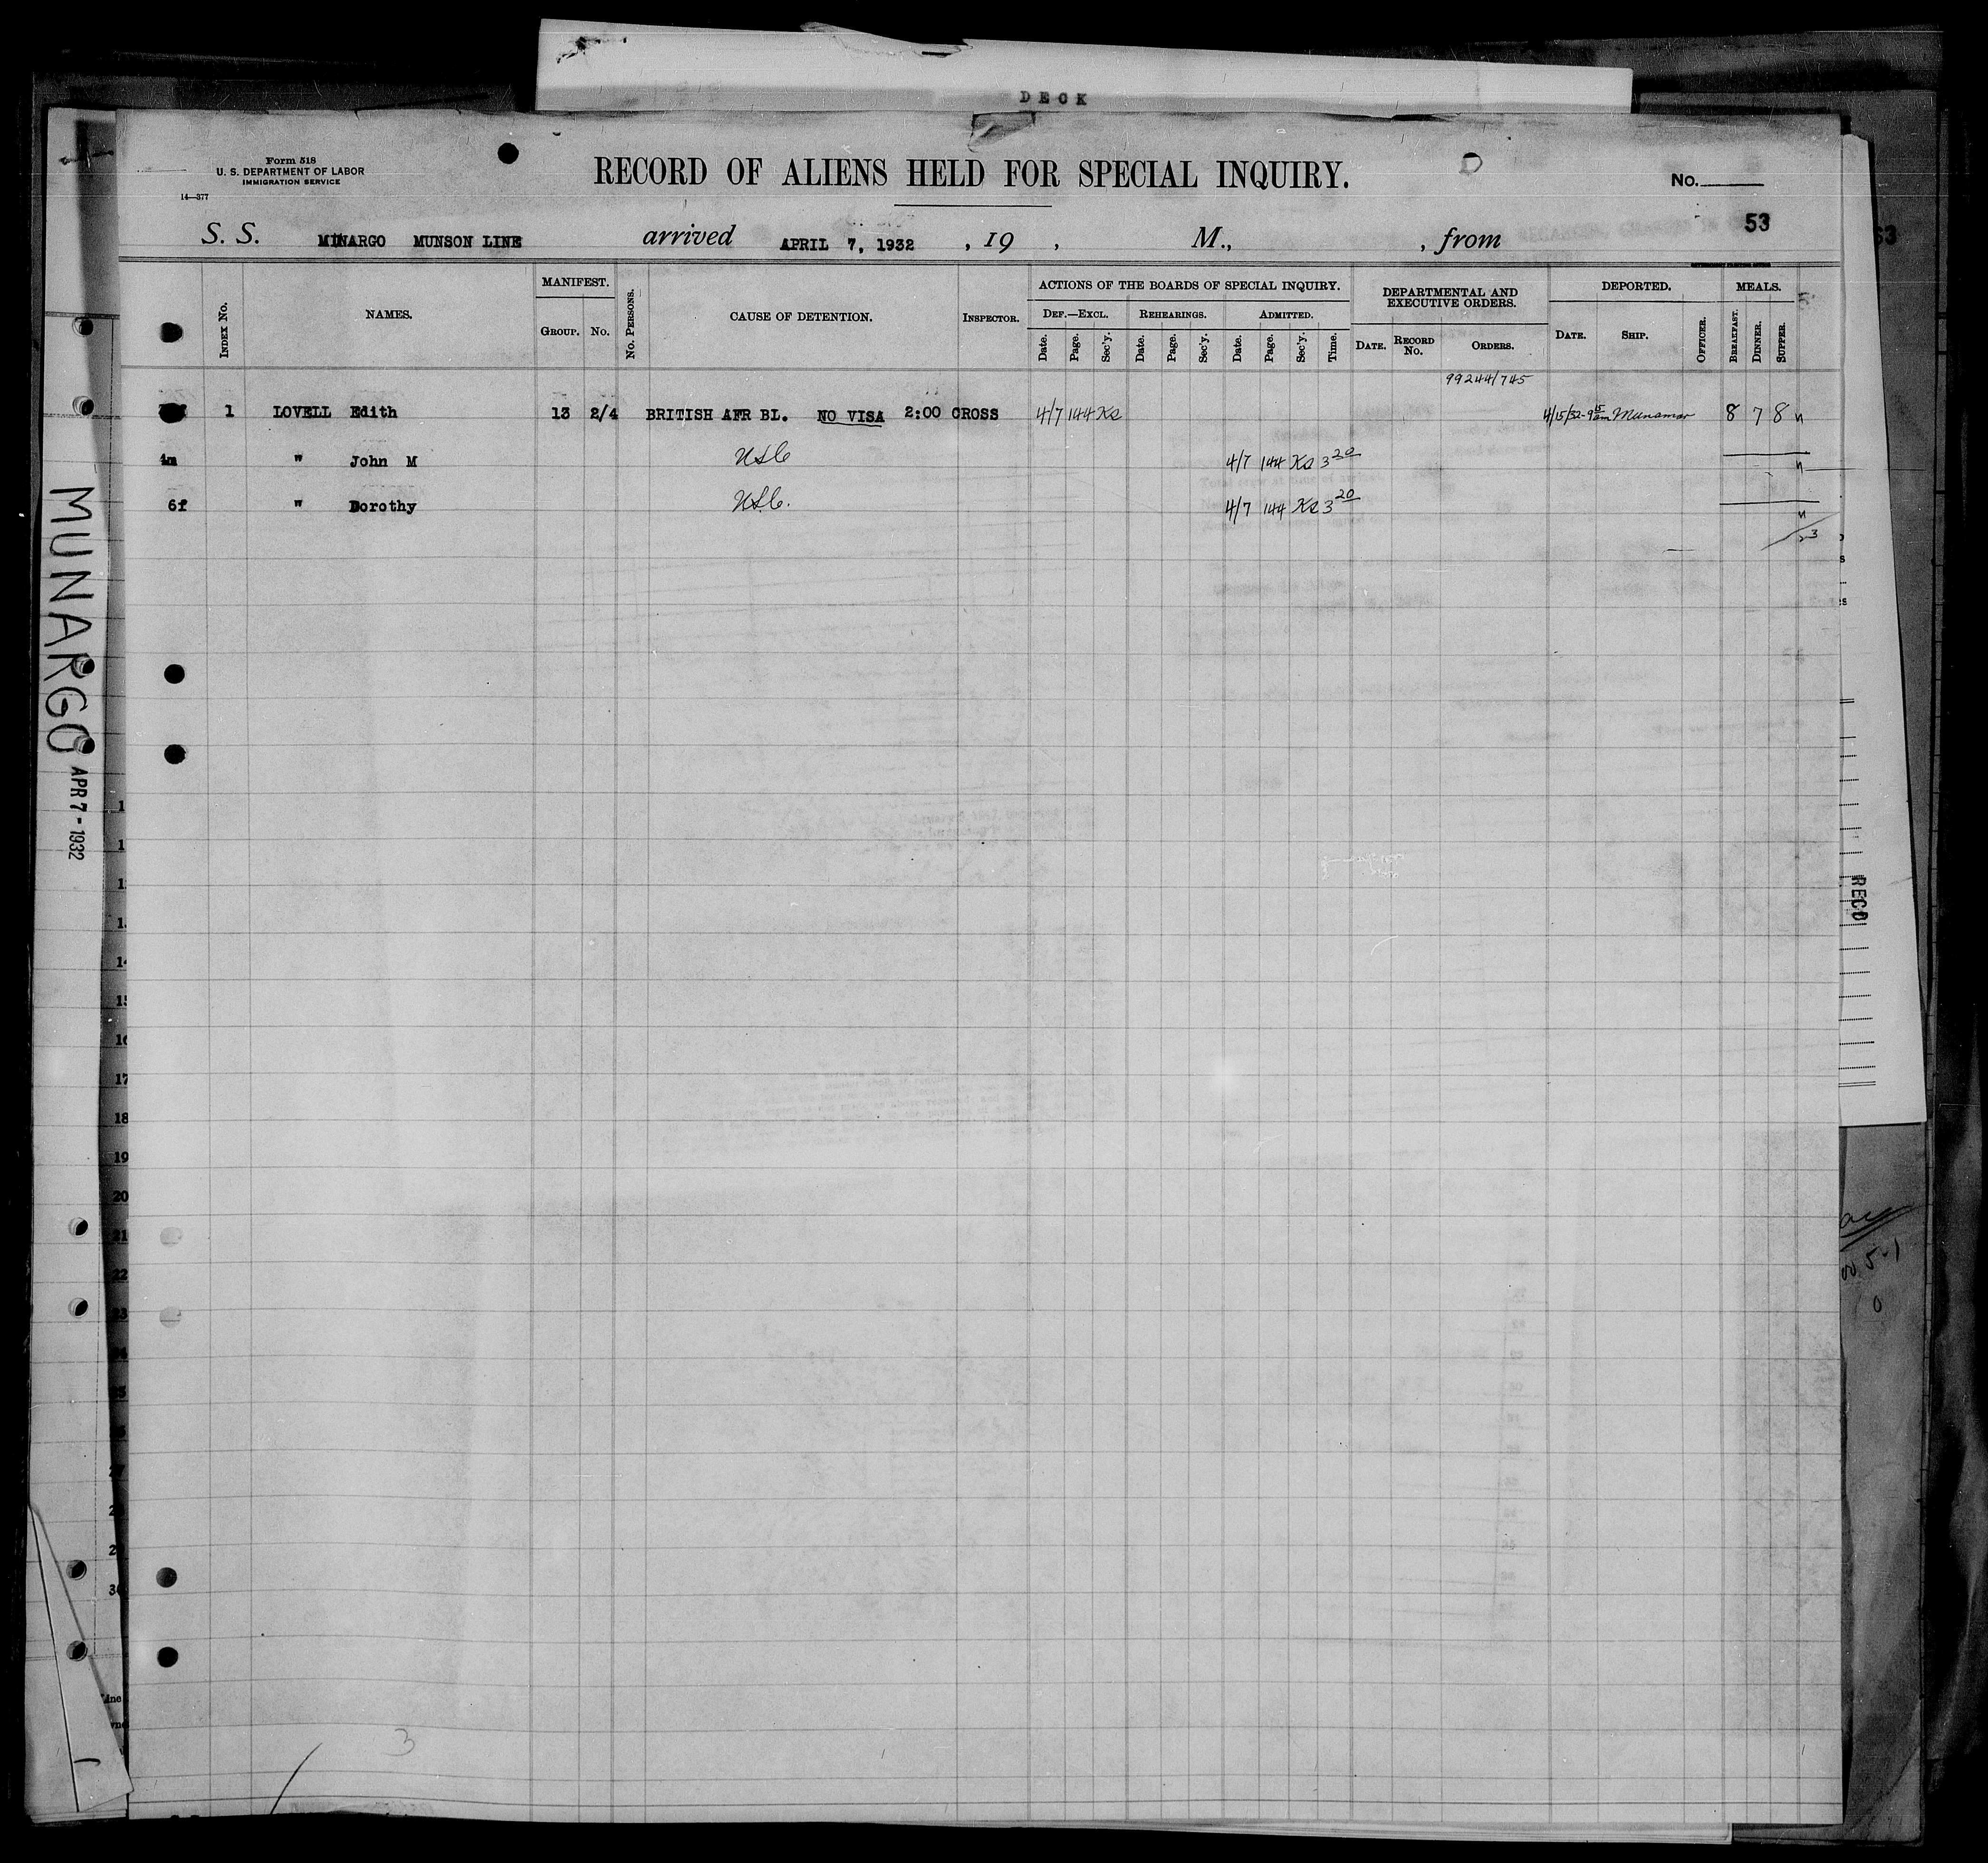 DECK
Form 518
U. S. DEPARTMENT OF LABOR
IMMIGRATION SERVICE
14—377
RECORD OF ALIENS HELD FOR SPECIAL INQUIRY.
No.
53
S. S. MUNARGO MUNSON LINE arrived APRIL 7, 1932 , 19 , M., , from
53
INDEX No.
NAMES.
MANIFEST.
GROUP. No.
No. PERSONS.
CAUSE OF DETENTION.
INSPECTOR.
ACTIONS OF THE BOARDS OF SPECIAL INQUIRY.
DEF.—EXCL. REHEARINGS. ADMITTED.
Date. Page. Sec'y. Date. Page. Sec'y. Date. Page. Sec'y. Time.
DEPARTMENTAL AND
EXECUTIVE ORDERS.
DATE. RECORD No. ORDERS.
DEPORTED.
DATE. SHIP. OFFICER.
MEALS.
BREAKFAST. DINNER. SUPPER.
99244/745
1 LOVELL Edith 13 2/4 BRITISH AFR BL. NO VISA 2:00 CROSS 4/7 144 Ks 4/15/32-9 15 am Munamar 8 7 8 n
4m " John M USC 4/7 144 Ks 3 20 n
6f " Dorothy USC. 4/7 144 Ks 3 20 n
3
MUNARGO
APR 7 - 1932
RECD
14
15
16
17
18
19
20
21
22
23
3